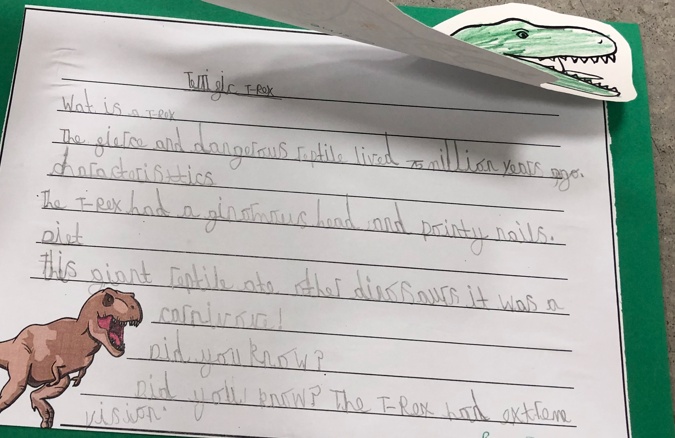 T-Rex
Wat is a T-Rex
The gierce and dangerous reptile lived 75 million years ago.
characteristics
The T-Rex had a ginormous head and pointy nails.
Diet
This giant reptile ate other dinosaurs it was a
carnivore!
Did you know?
Did you know? The T-Rex had extreme
vision.